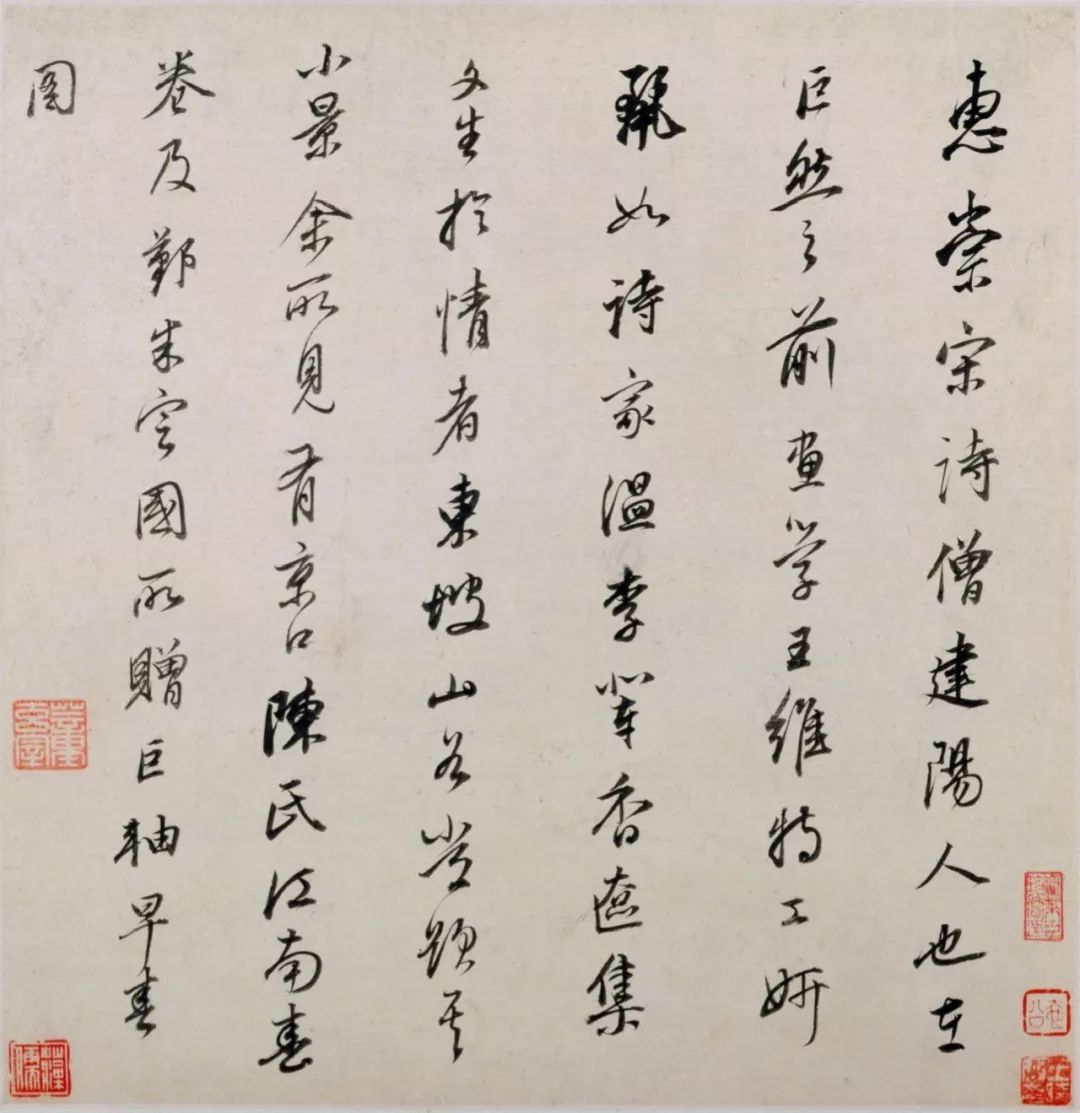 惠崇宋詩僧建陽人也在
巨然之前畫學王維特工妍
麗如詩家温李輩香奩集
文生於情者東坡山谷嘗題其
小景余所見有京口陳氏江南春
卷及鄞朱定國所贈巨軸早春
圖